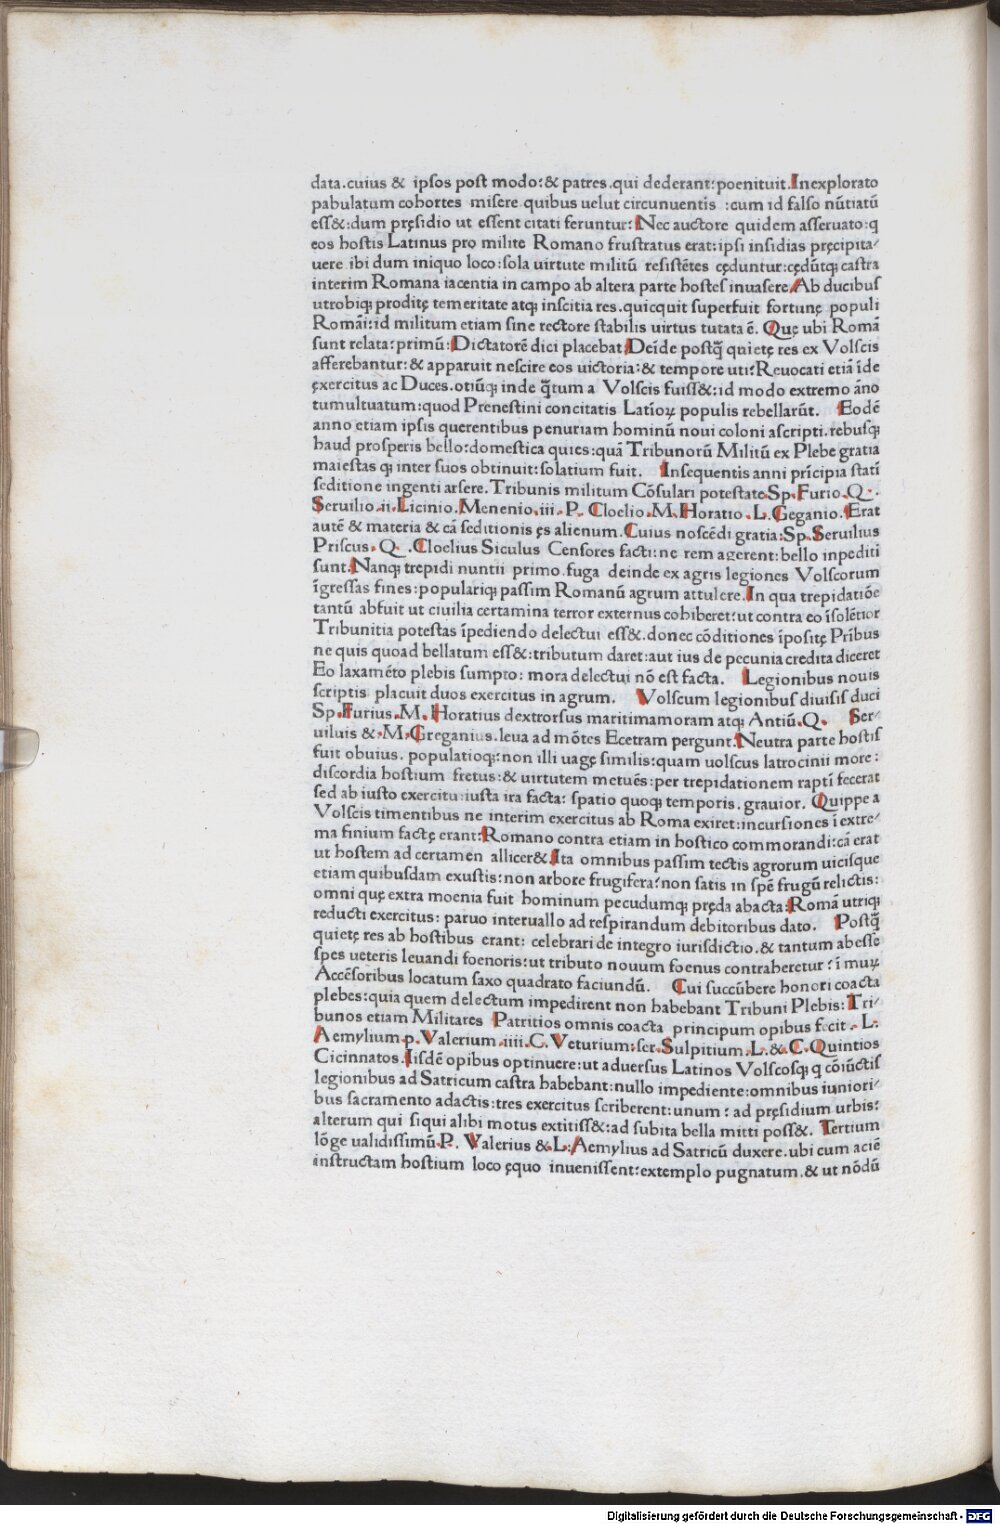 data.cuius & ipsos post modo:& patres.qui dederant:poenituit.Inexplorato
pabulatum cohortes misere quibus uelut circunuentis :cum id falso nūtiatū
ess&:dum pręsidio ut essent citati feruntur:Nec auctore quidem asseruato:q
eos hostis Latinus pro milite Romano frustratus erat:ipsi insidias pręcipita-
uere ibi dum iniquo loco:sola uirtute militū resistētes cęduntur:cędūtqꝫ castra
interim Romana iacentia in campo ab altera parte hostes inuasere.Ab ducibus
utrobiqꝫ proditę temeritate atqꝫ inscitia res.quicquit superfuit fortunę populi
Romāi:id militum etiam sine rectore stabilis uirtus tutata ē. Quę ubi Romā
sunt relata:primū:Dictatorē dici placebat.Deīde postq̄ quietę res ex Volscis
afferebantur:& apparuit nescire eos uictoria:& tempore uti:Reuocati etiā īde
ęxercitus ac Duces.otiūqꝫ inde q̄tum a Volscis fuiss&:id modo extremo āno
tumultuatum:quod Prenestini concitatis Latioꝝ populis rebellarūt. Eodē
anno etiam ipsis querentibus penuriam hominū noui coloni ascripti.rebusqꝫ
haud prosperis bello:domestica quies:quā Tribunorū Militū ex Plebe gratia
maiestas qꝫ inter suos obtinuit:solatium fuit. Insequentis anni prīcipia statī
seditione ingenti arsere.Tribunis militum Cōsulari potestate.Sp.Furio.Q.
Seruilio.ii.Licinio.Menenio.iii.P. Cloelio.M.Horatio.L.Geganio.Erat
autē & materia & cā seditionis ęs alienum.Cuius noscēdi gratia:Sp.Seruilius
Priscus.Q. .Cloelius Siculus Censores facti:ne rem agerent:bello inpediti
sunt.Nanqꝫ trepidi nuntii primo fuga deinde ex agris legiones Volscorum
īgressas fines:populariqꝫ passim Romanū agrum attulere.In qua trepidatiōe
tantū abfuit ut ciuilia certamina terror externus cohiberet:ut contra eo īsolētior
Tribunitia potestas īpediendo delectui ess&.donec cōditiones īpositę Prībus
ne quis quoad bellatum ess&:tributum daret:aut ius de pecunia credita diceret
Eo laxamēto plebis sumpto:mora delectui nō est facta. Legionibus nouis
scriptis placuit duos exercitus in agrum. Volscum legionibus diuisis duci
Sp.Furius.M.Horatius dextrorsus maritimamoram atqꝫ Antiū.Q. Ser-
uiluis &.M.Greganius.leua ad mōtes Ecetram pergunt.Neutra parte hostis
fuit obuius.populatioqꝫ:non illi uagę similis:quam uolscus latrocinii more:
discordia hostium fretus:& uirtutem metuēs:per trepidationem raptī fecerat
sed ab iusto exercitu iusta ira facta:spatio quoqꝫ temporis.grauior. Quippe a
Volscis timentibus ne interim exercitus ab Roma exiret:incursiones ī extre-
ma finium factę erant:Romano contra etiam in hostico commorandi:cā erat
ut hostem ad certamen allicer&.Ita omnibus passim tectis agrorum uicisque
etiam quibusdam exustis:non arbore frugifera:non satis in spē frugū relictis:
omni quę extra moenia fuit hominum pecudumqꝫ pręda abacta:Romā utriqꝫ
reducti exercitus:paruo interuallo ad respirandum debitoribus dato. Postq̄
quietę res ab hostibus erant:celebrari de integro iurisdictio.& tantum abesse
spes ueteris leuandi foenoris:ut tributo nouum foenus contraheretur:ī muꝝ
Accēsoribus locatum saxo quadrato faciundū. Cui succūbere honori coacta
plebes:quia quem delectum impedirent non habebant Tribuni Plebis:Tri-
bunos etiam Militares Patritios omnis coacta principum opibus fecit.L.
Aemylium.p.Valerium.iiii.C.Veturium:ser.Sulpitium.L.&.C.Quintios
Cicinnatos.Iisdē opibus optinuere:ut aduersus Latinos Volscosqꝫ q cōiūctis
legionibus ad Satricum castra habebant:nullo impediente:omnibus iuniori-
bus sacramento adactis:tres exercitus scriberent:unum:ad pręsidium urbis:
alterum qui siqui alibi motus extitiss&:ad subita bella mitti poss&. Tertium
lōge ualidissimū.P. Valerius &.L:Aemylius ad Satricū duxere.ubi cum aciē
instructam hostium loco ęquo inuenissent:extemplo pugnatum.& ut nōdū
Digitalisierung gefördert durch die Deutsche Forschungsgemeinschaft - DFG